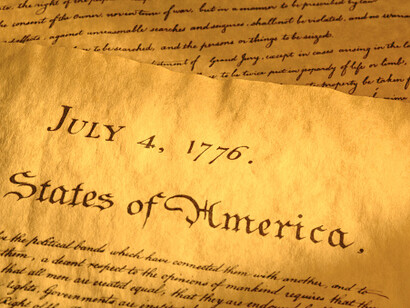 the right of the pe
the consent of the owner, nor in time of war, but in a manner to be prescribed by law
effects, against unreasonable searches and seizures, shall not be violated, and no
to be searched, and the persons or things to be seized.
of a Grand Jury, except in cases arising in the la
to be twice put in jeopardy of life or limb,
property be taken f
JULY 4, 1776.
States of America,
the political bands which have connected them with another, and to
them, a decent respect to the opinions of mankind requires that th
that all men are created equal, that they are endowed
rights, Governments are